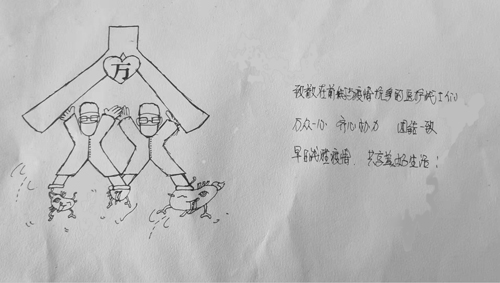 万
致敬在前线与疫情抗争的医护战士们
万众一心 齐心协力 团结一致
早日战胜疫情，共享美好生活！